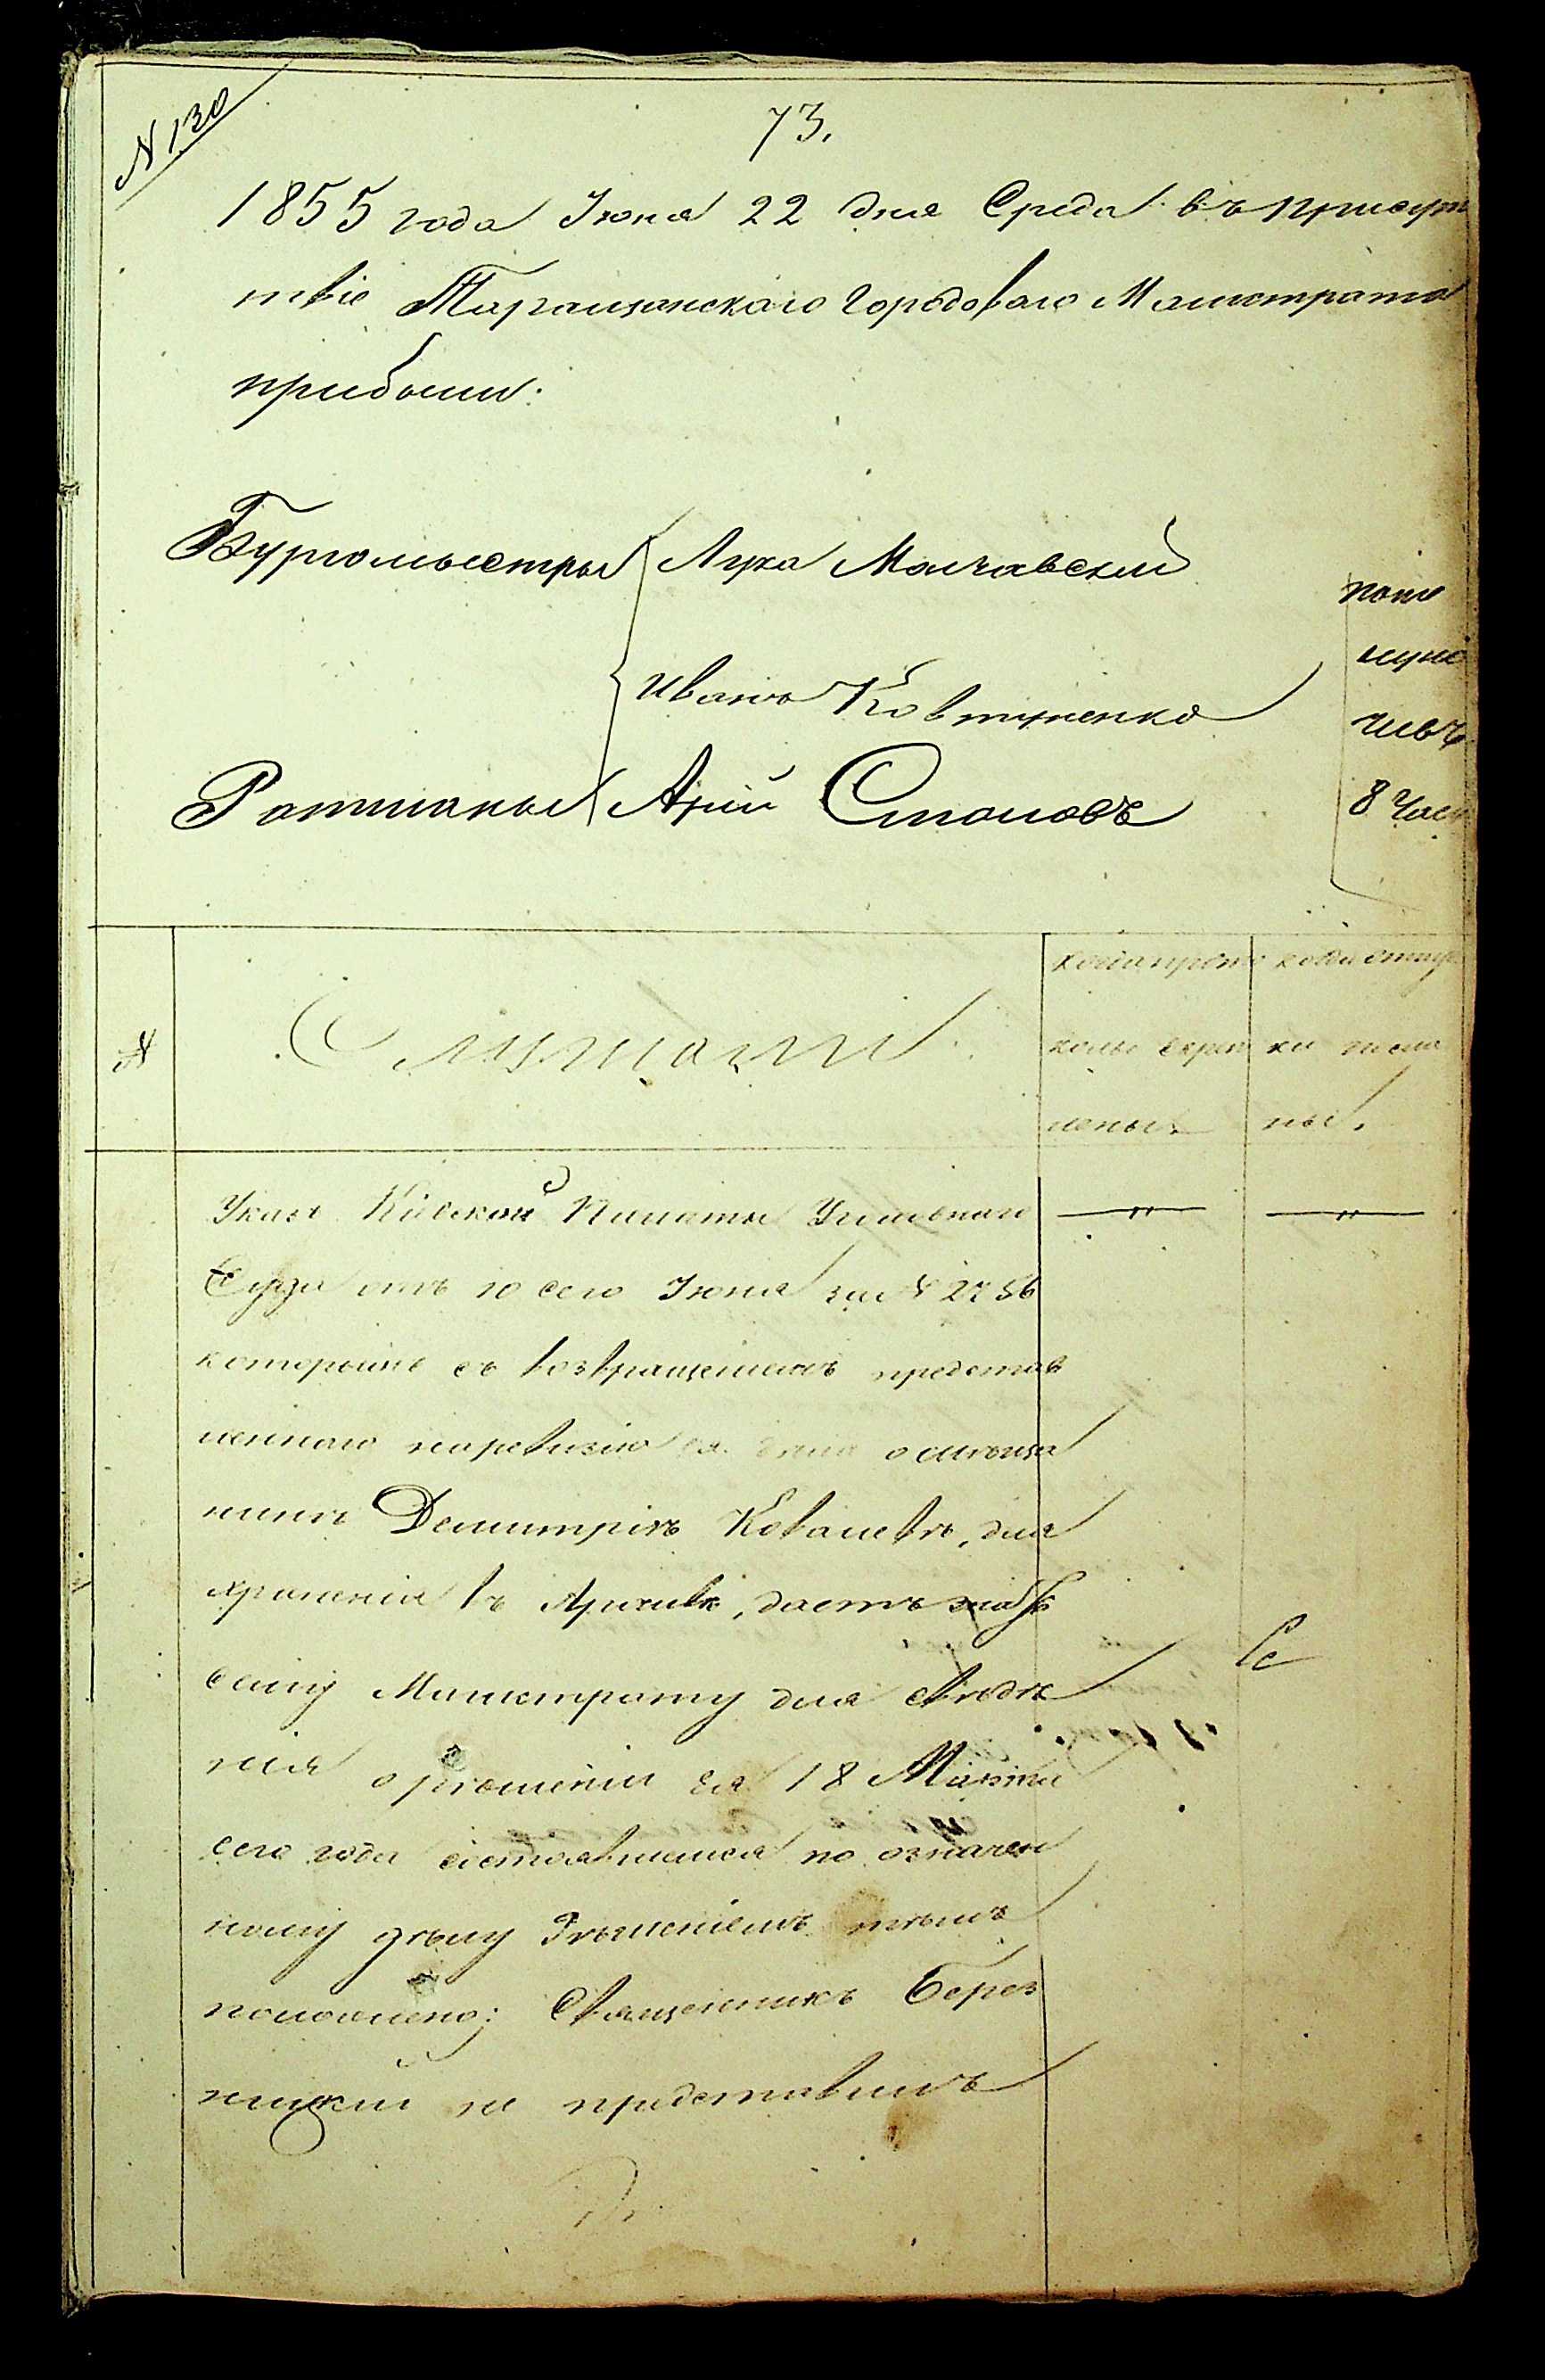 N 130
73.
1855 года Іюня 22 дня Среда въ присут
твіе Таращанскаго Городоваго Магистрата
прибыли:
Бургомыстры Лука
Иванъ Ковтуненко
Ратманы
попо
луно
чивъ
8 Часъ
N
Слушали
когда прото
колы скреп
лены.
когда отпус
ки писа
ны.
Указъ Кіевской Палаты Уголовнаго
Суда отъ 10 сего Іюня за N 2756
которымъ съ возвращеніемъ представ
леннаго наревизію ея дѣла о мѣща
нинѣ Демитріѣ Ковалевѣ, для
храненія въ Архивѣ, даетъ знать
сему Магистрату для свѣдѣ
нія о рѣшеніи ея 18 Марта
сего года состоявшемся по означен
ному дѣлу Рѣшеніемъ тѣмъ
положено: Священникъ Берез
ницкій не представилъ